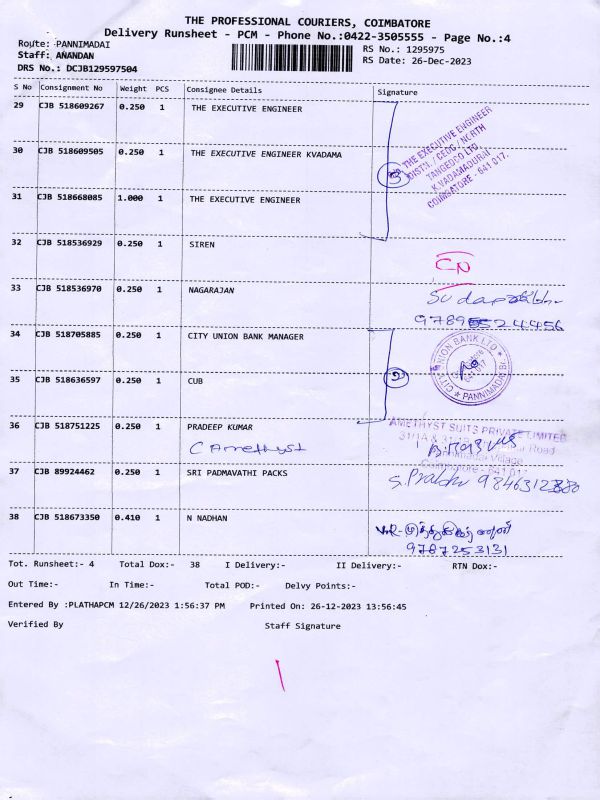 THE PROFESSIONAL COURIERS, COIMBATORE
Delivery Runsheet - PCM - Phone No.:0422-3505555 - Page No.:4
Route: PANNIMADAI
RS No.: 1295975
Staff: ANANDAN
RS Date: 26-Dec-2023
DRS No.: DCJB129597504
S No Consignment No Weight PCS Consignee Details Signature
29 CJB 518609267 0.250 1 THE EXECUTIVE ENGINEER
THE EXECUTIVE ENGINEER
DISTN. / CEDC / NORTH
TANGEDCO LTD
K.VADAMADURAI
COIMBATORE - 641 017.
30 CJB 518609505 0.250 1 THE EXECUTIVE ENGINEER KVADAMA
3
31 CJB 518668085 1.000 1 THE EXECUTIVE ENGINEER
32 CJB 518536929 0.250 1 SIREN
CN
33 CJB 518536970 0.250 1 NAGARAJAN
34 CJB 518705885 0.250 1 CITY UNION BANK MANAGER
CITY UNION BANK LTD
641 017
PANNIMADAI Br.
35 CJB 518636597 0.250 1 CUB
2
36 CJB 518751225 0.250 1 PRADEEP KUMAR
C Amethyst
AMETHYST SUITS PRIVATE LIMITED
Road
Village
Coimbatore - 641 017
37 CJB 89924462 0.250 1 SRI PADMAVATHI PACKS
S. Prabhu
38 CJB 518673350 0.410 1 N NADHAN
9787253131
Tot. Runsheet:- 4 Total Dox:- 38 I Delivery:- II Delivery:- RTN Dox:-
Out Time:- In Time:- Total POD:- Delvy Points:-
Entered By :PLATHAPCM 12/26/2023 1:56:37 PM Printed On: 26-12-2023 13:56:45
Verified By Staff Signature